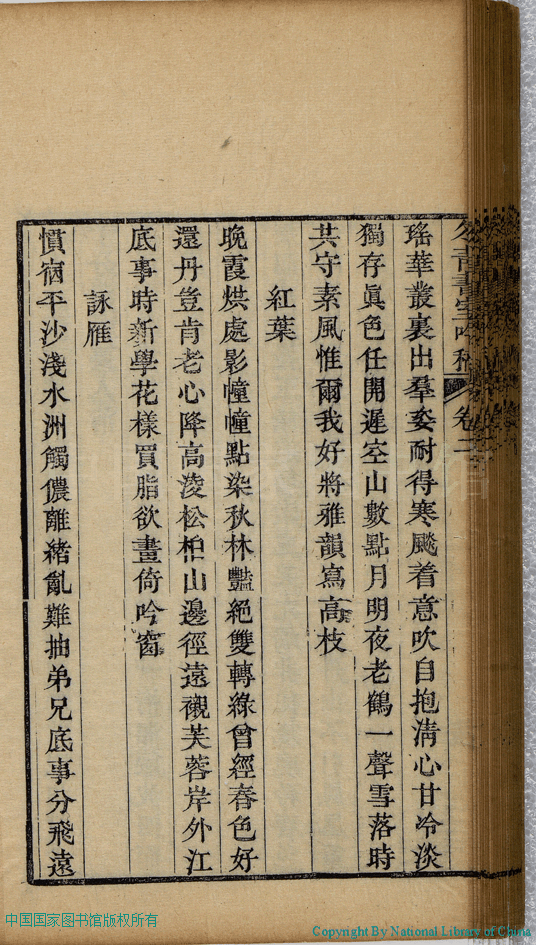 瑤華叢裏出羣姿耐得寒颷着意吹自抱清心甘冷淡
獨存眞色任開遲空山數點月明夜老鶴一聲雪落時
共守素風惟爾我好將雅韻寫高枝
紅葉
晚霞烘處影幢幢點染秋林豔絕雙轉綠曾經春色好
還丹豈肯老心降高淩松柏山邊徑遠襯芙蓉岸外江
底事時新學花樣買脂欲畫倚吟窗
詠雁
慣宿平沙淺水洲觸儂離緒亂難抽弟兄底事分飛遠
中国国家图书馆版权所有
Copyright By National Library of China